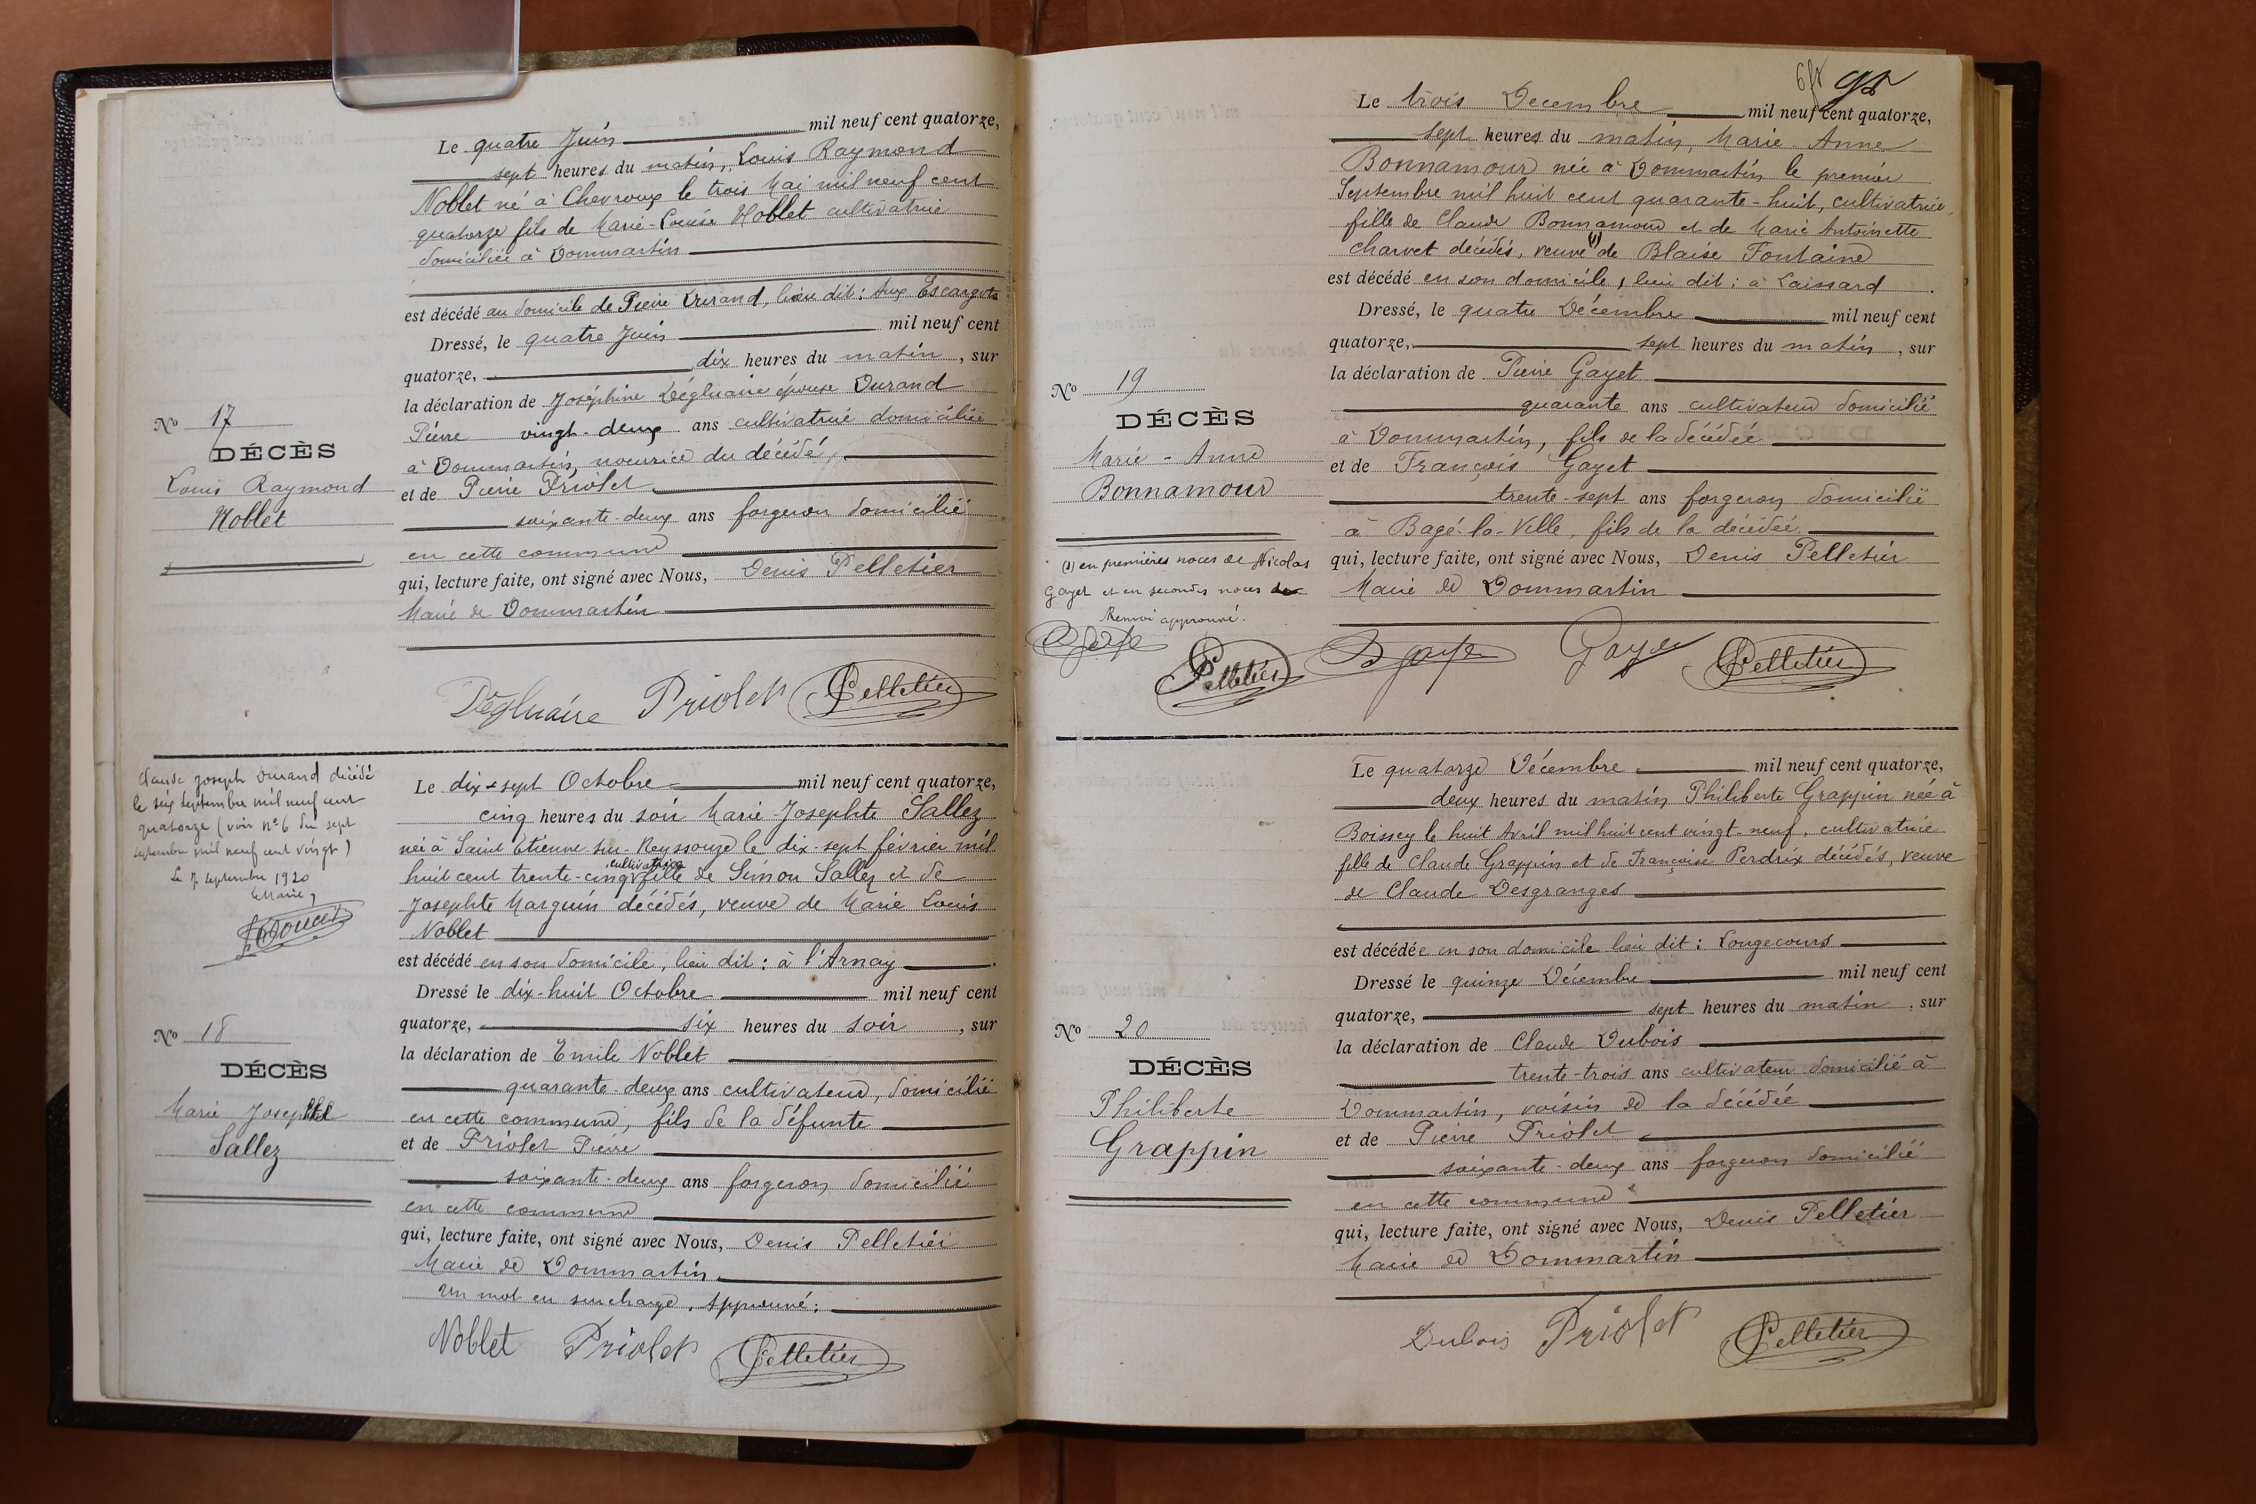 Le quatre Juin mil neuf cent quatorze,
sept heures du matin, Louis Raymond
Noblet né à Chevroux le trois Mai mil neuf cent
quatorze fils de Marie-Louise Noblet cultivatrice
domiciliée à Dommartin
est décédé au domicile de Pierre Durand, lieu dit : Aux Escargots
Dressé, le quatre Juin mil neuf cent
quatorze, dix heures du matin, sur
la déclaration de Joséphine Dégluaire épouse Durand
Pierre vingt-deux ans cultivatrice domiciliée
à Dommartin, nourrice du décédé,
et de Pierre Priolet
soixante-deux ans forgeron domicilié
en cette commune
qui, lecture faite, ont signé avec Nous, Denis Pelletier
Maire de Dommartin
Dégluaire Priolet Pelletier
No 17
DÉCÈS
Louis Raymond
Noblet
Claude Joseph Durand décédé
le six Septembre mil neuf cent
quatorze (voir No 6 du sept
septembre mil neuf cent vingt)
Le 7 septembre 1920
Le Maire,
Le dix-sept Octobre mil neuf cent quatorze,
cinq heures du soir Marie Josephte Sallez
née à Saint Etienne sur-Reyssouze le dix-sept février mil
cultivatrice
huit cent trente-cinq fille de Simon Sallez et de
Josephte Marguin décédés, veuve de Marie Louis
Noblet
est décédé en son domicile, lieu dit : à l'Arnay
Dressé le dix-huit Octobre mil neuf cent
quatorze, six heures du soir, sur
la déclaration de Emile Noblet
quarante-deux ans cultivateur, domicilié
en cette commune, fils de la défunte
et de Priolet Pierre
soixante-deux ans forgeron domicilié
en cette commune
qui, lecture faite, ont signé avec Nous, Denis Pelletier
Maire de Dommartin
Un mot en surcharge, Approuvé :
Noblet Priolet Pelletier
No 18
DÉCÈS
Marie Josephte
Sallez
Le trois Decembre mil neuf cent quatorze,
sept heures du matin, Marie Anne
Bonnamour née à Dommartin le premier
Septembre mil huit cent quarante-huit, cultivatrice,
fille de Claude Bonnamour et de Marie Antoinette
Charvet décédés, veuve (1) de Blaise Fontaine
est décédé en son domicile, lieu dit : à Laissard.
Dressé, le quatre Décembre mil neuf cent
quatorze, sept heures du matin, sur
la déclaration de Pierre Gayet
quarante ans cultivateur domicilié
à Dommartin, fils de la décédée
et de François Gayet
trente-sept ans forgeron domicilié
à Bagé-la-Ville, fils de la décédée
qui, lecture faite, ont signé avec Nous, Denis Pelletier
Maire de Dommartin
Gayet Pelletier
No 19
DÉCÈS
Marie-Anne
Bonnamour
(1) en premières noces de Nicolas
Gayet et en secondes noces
Renvoi approuvé.
Pelletier
Le quatorze Décembre mil neuf cent quatorze,
deux heures du matin Philiberte Grappin née à
Boissey le huit Avril mil huit cent vingt-neuf, cultivatrice
fille de Claude Grappin et de Françoise Perdrix décédés, veuve
de Claude Desgranges
est décédée en son domicile lieu dit : Longecours
Dressé le quinze Décembre mil neuf cent
quatorze, sept heures du matin, sur
la déclaration de Claude Dubois
trente-trois ans cultivateur domicilié à
Dommartin, voisin de la décédée
et de Pierre Priolet
soixante-deux ans forgeron domicilié
en cette commune
qui, lecture faite, ont signé avec Nous, Denis Pelletier
Maire de Dommartin
Dubois Priolet Pelletier
No 20
DÉCÈS
Philiberte
Grappin